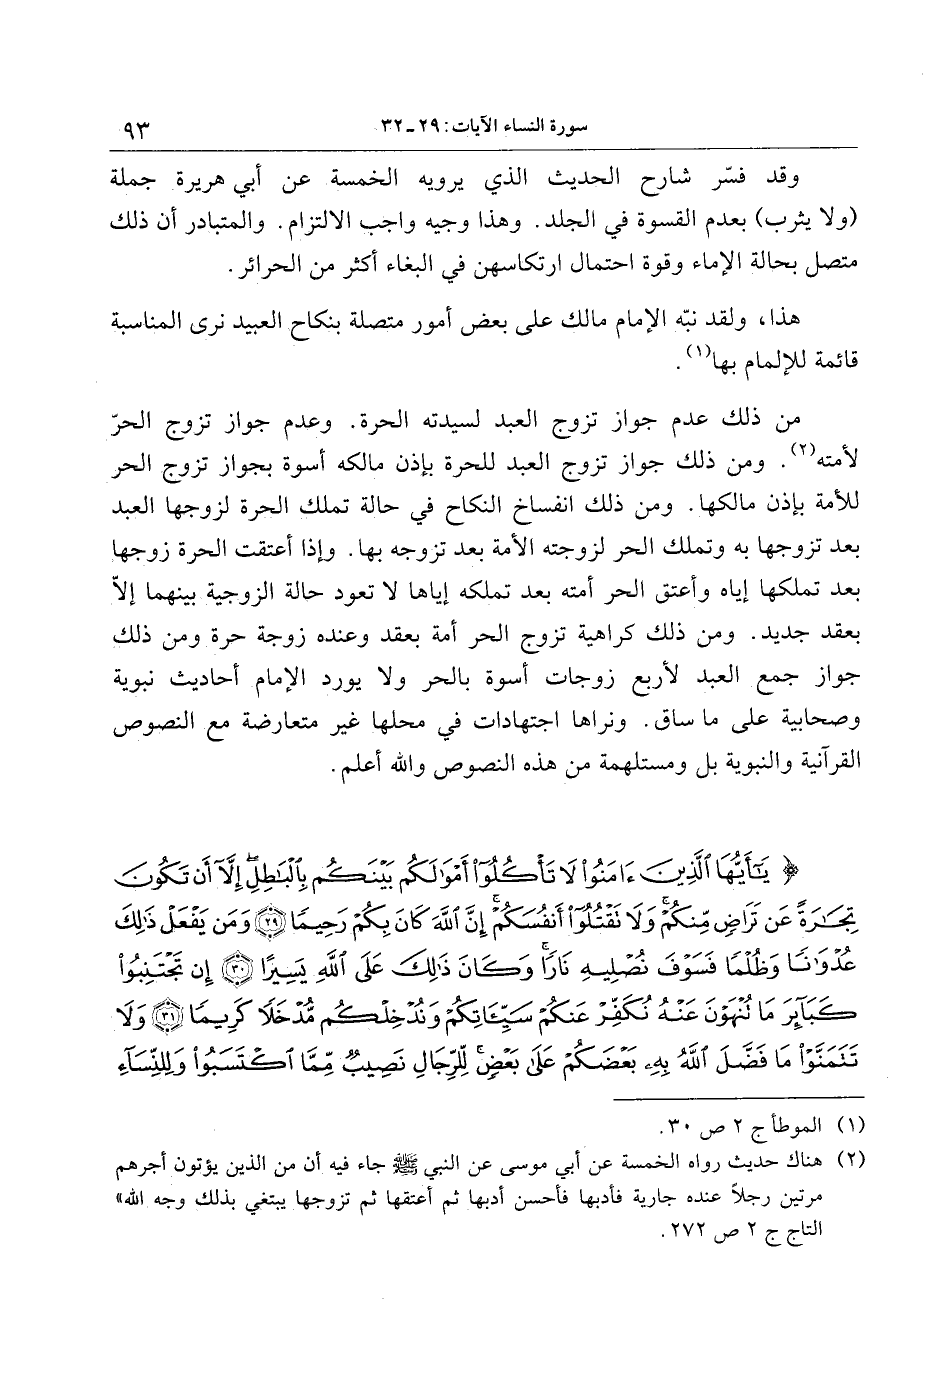 سورة النساء الآيات: ٢٩ ـ ٣٢. ٩٣
وقد فسّر شارح الحديث الذي يرويه الخمسة عن أبي هريرة جملة
(ولا يثرب) بعدم القسوة في الجلد. وهذا وجيه واجب الالتزام. والمتبادر أن ذلك
متصل بحالة الإماء وقوة احتمال ارتكاسهن في البغاء أكثر من الحرائر.
هذا، ولقد نبّه الإمام مالك على بعض أمور متصلة بنكاح العبيد نرى المناسبة
قائمة للإلمام بها(١).
من ذلك عدم جواز تزوج العبد لسيدته الحرة. وعدم جواز تزوج الحرّ
لأمته(٢). ومن ذلك جواز تزوج العبد للحرة بإذن مالكه أسوة بجواز تزوج الحر
للأمة بإذن مالكها. ومن ذلك انفساخ النكاح في حالة تملك الحرة لزوجها العبد
بعد تزوجها به وتملك الحر لزوجته الأمة بعد تزوجه بها. وإذا أعتقت الحرة زوجها
بعد تملكها إياه وأعتق الحر أمته بعد تملكه إياها لا تعود حالة الزوجية بينهما إلاّ
بعقد جديد. ومن ذلك كراهية تزوج الحر أمة بعقد وعنده زوجة حرة ومن ذلك
جواز جمع العبد لأربع زوجات أسوة بالحر ولا يورد الإمام أحاديث نبوية
وصحابية على ما ساق. ونراها اجتهادات في محلها غير متعارضة مع النصوص
القرآنية والنبوية بل ومستلهمة من هذه النصوص والله أعلم.
﴿ يَٰٓأَيُّهَا ٱلَّذِينَ ءَامَنُوا۟ لَا تَأْكُلُوٓا۟ أَمْوَٰلَكُم بَيْنَكُم بِٱلْبَٰطِلِ إِلَّآ أَن تَكُونَ
تِجَٰرَةً عَن تَرَاضٍ مِّنكُمْ ۚ وَلَا نَقْتُلُوٓا۟ أَنفُسَكُمْ ۚ إِنَّ ٱللَّهَ كَانَ بِكُمْ رَحِيمًا ٢٩ وَمَن يَفْعَلْ ذَٰلِكَ
عُدْوَٰنًا وَظُلْمًا فَسَوْفَ نُصْلِيهِ نَارًا ۚ وَكَانَ ذَٰلِكَ عَلَى ٱللَّهِ يَسِيرًا ٣٠ إِن تَجْتَنِبُوا۟
كَبَآئِرَ مَا تُنْهَوْنَ عَنْهُ نُكَفِّرْ عَنكُمْ سَيِّـَٔاتِكُمْ وَنُدْخِلْكُم مُّدْخَلًا كَرِيمًا ٣١ وَلَا
تَتَمَنَّوْا۟ مَا فَضَّلَ ٱللَّهُ بِهِۦ بَعْضَكُمْ عَلَىٰ بَعْضٍ ۚ لِّلرِّجَالِ نَصِيبٌ مِّمَّا ٱكْتَسَبُوا۟ وَلِلنِّسَآءِ
(١) الموطأ ج ٢ ص ٣٠.
(٢) هناك حديث رواه الخمسة عن أبي موسى عن النبي ﷺ جاء فيه أن من الذين يؤتون أجرهم
مرتين رجلاً عنده جارية فأدبها فأحسن أدبها ثم أعتقها ثم تزوجها يبتغي بذلك وجه الله»
التاج ج ٢ ص ٢٧٢.